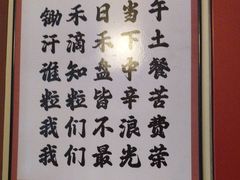 锄禾日当午
汗滴禾下土
谁知盘中餐
粒粒皆辛苦
我们不浪费
我们最光荣